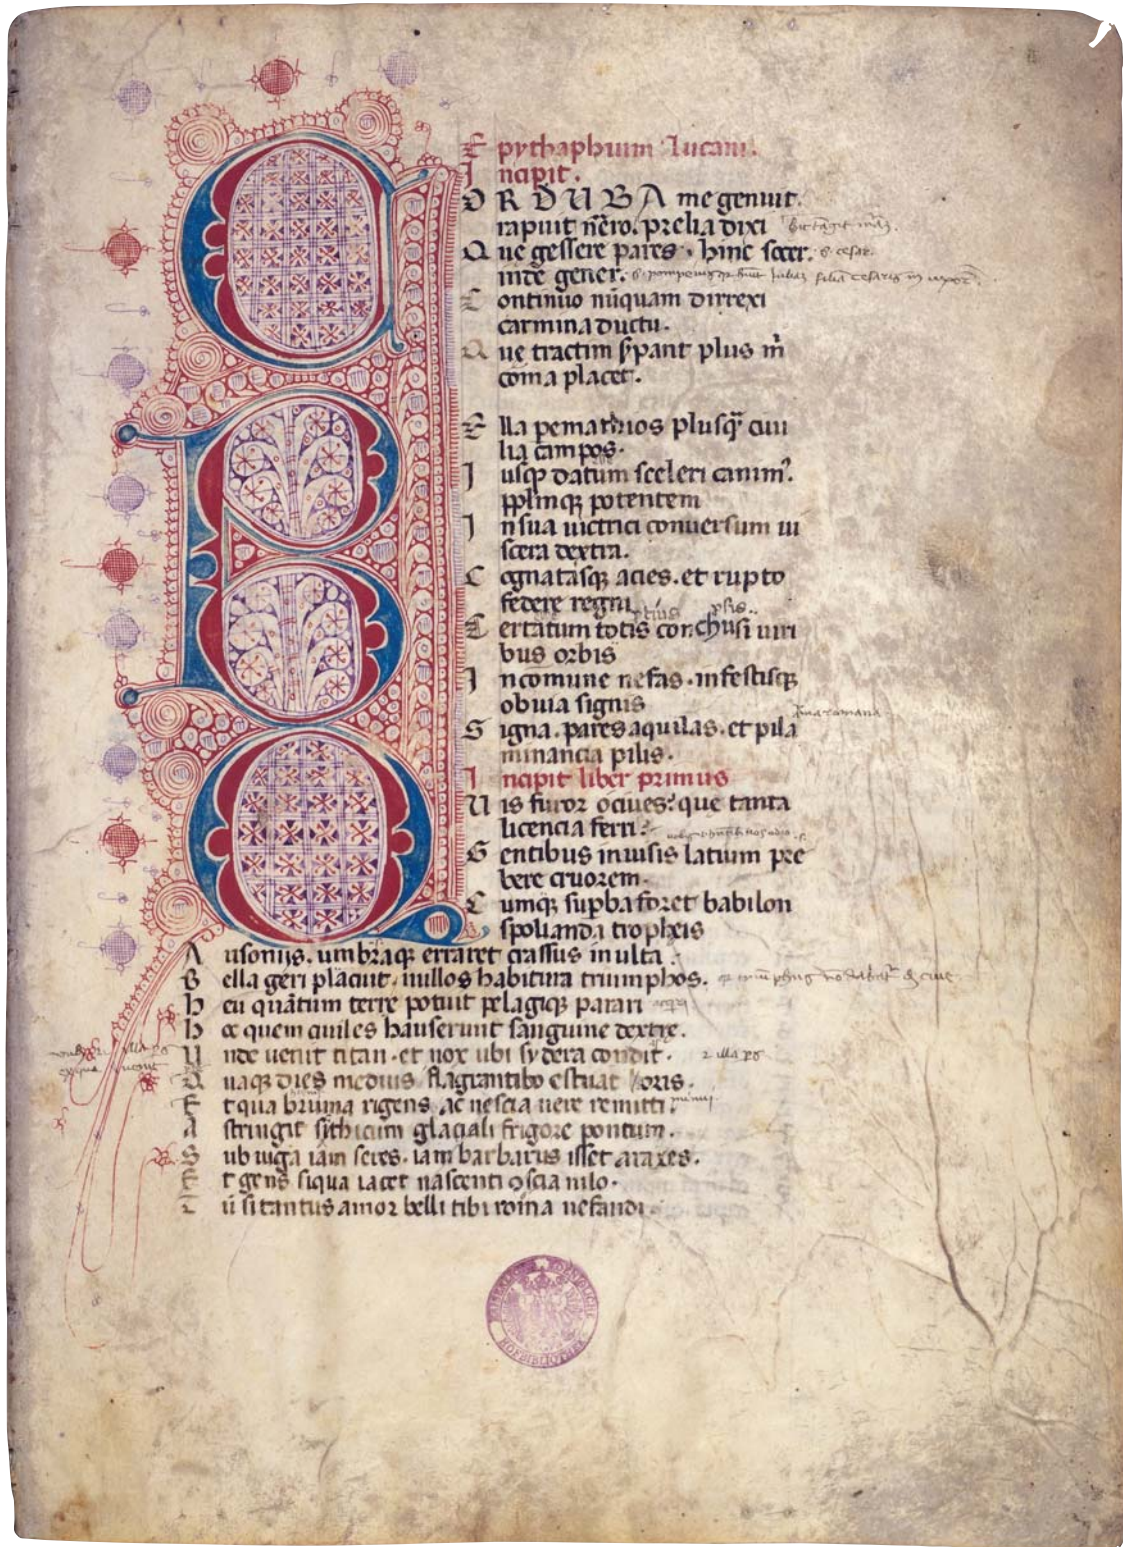 Epythaphium Lucani.
Incipit.
CORDUBA me genuit.
rapuit nero. prelia dixi
Que gessere pares. hinc socer. s. cesar.
inde gener.
Continuo nūquam dirrexi
carmina ductu.
Que tractim sṗant plus m̄
coma placet.
Bella pemathios plusq̄ ciui
lia campos.
Iusq̨ datum sceleri canimꝰ.
pplmq̨ potentem
In sua uictrici conuersum ui
scera dextra.
Cognatasq̨ acies. et rupto
federe regni
Certatum totis conchusi uiri
bus orbis
In comune nefas. infestisq̨
obuia signis
Signa. pares aquilas. et pila
minancia pilis.
Incipit liber primus
Uis furor o ciues? que tanta
licencia ferri?
Gentibus inuisis latium pre
bere cruorem.
Cumq̨ suꝑba foret babilon
spolianda tropheis
Ausonijs. umbraq̨ erraret crassus inulta.
Bella geri placuit. nullos habitura triumphos.
Heu quātum terre potuit pelagiq̨ parari
Hoc quem ciuiles hauserunt sanguine dextre.
Unde uenit titan. et nox ubi sydera condit. 2 illa ꝑs
Quaq̨ dies medius flagrantibꝰ estuat horis.
Et qua bruma rigens ac nescia uere remitti.
Astringit sithicum glaciali frigore pontum.
Sub iuga iam seres. iam barbarus isset araxes.
Et gens siqua iacet nascenti ꝯscia nilo.
Tū si tantus amor belli tibi roma nefandi.
HOFBIBLIOTHEK